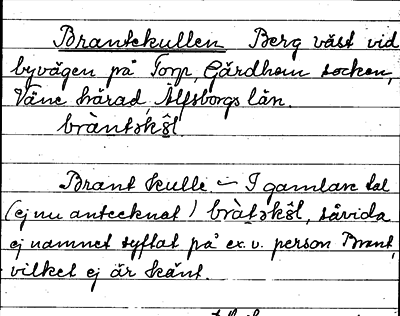 Brantekullen Berg väst vid
byvägen på Torp, Gärdhem socken,
Väne härad, Älfsborgs län.
bràntəkŭl̥
Brant kulle – I gamlare tal
(ej nu antecknat) bràtəkŭl̥, såvida
ej namnet syftat på ex. v. person Brant,
vilket ej är känt.